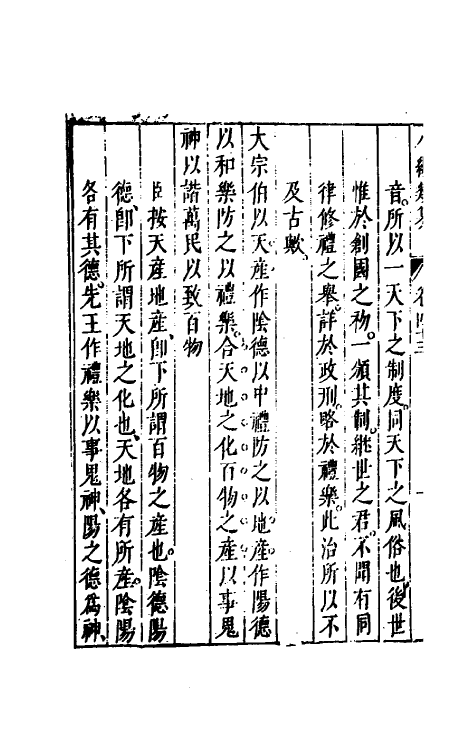 卷四十三
音所以一天下之制度同天下之風俗也後世
惟於創國之初一頒其制繼世之君不聞有同
律修禮之舉詳於政刑略於禮樂此治所以不
及古歟
大宗伯以天產作陰德以中禮防之以地產作陽德
以和樂防之以禮樂合天地之化百物之產以事鬼
神以諧萬民以致百物
臣按天產地產卽下所謂百物之產也陰德陽
德卽下所謂天地之化也天地各有所產陰陽
各有其德先王作禮樂以事鬼神陽之德爲神